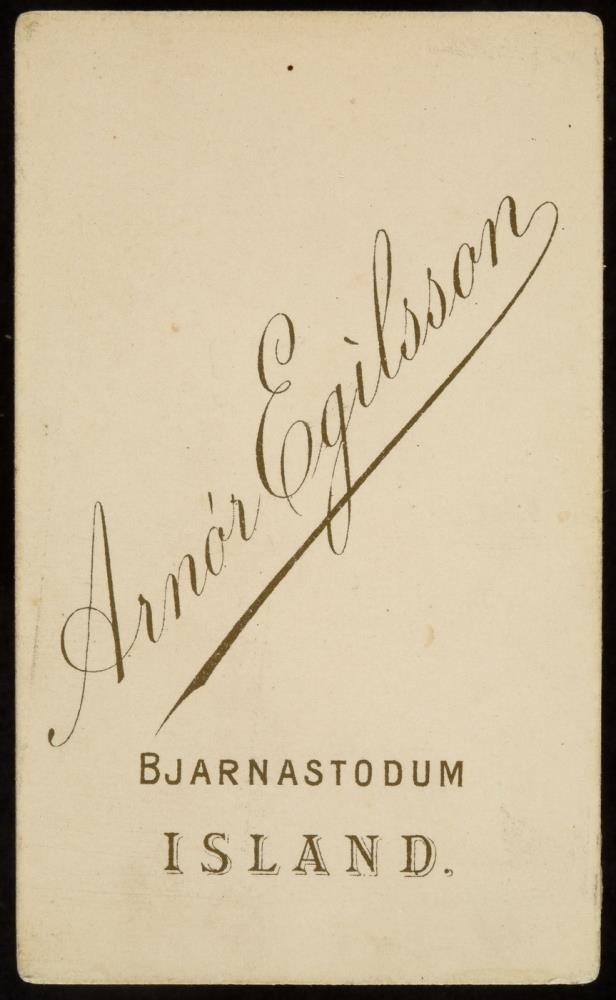 Arnór Egilsson
BJARNASTODUM
ISLAND.